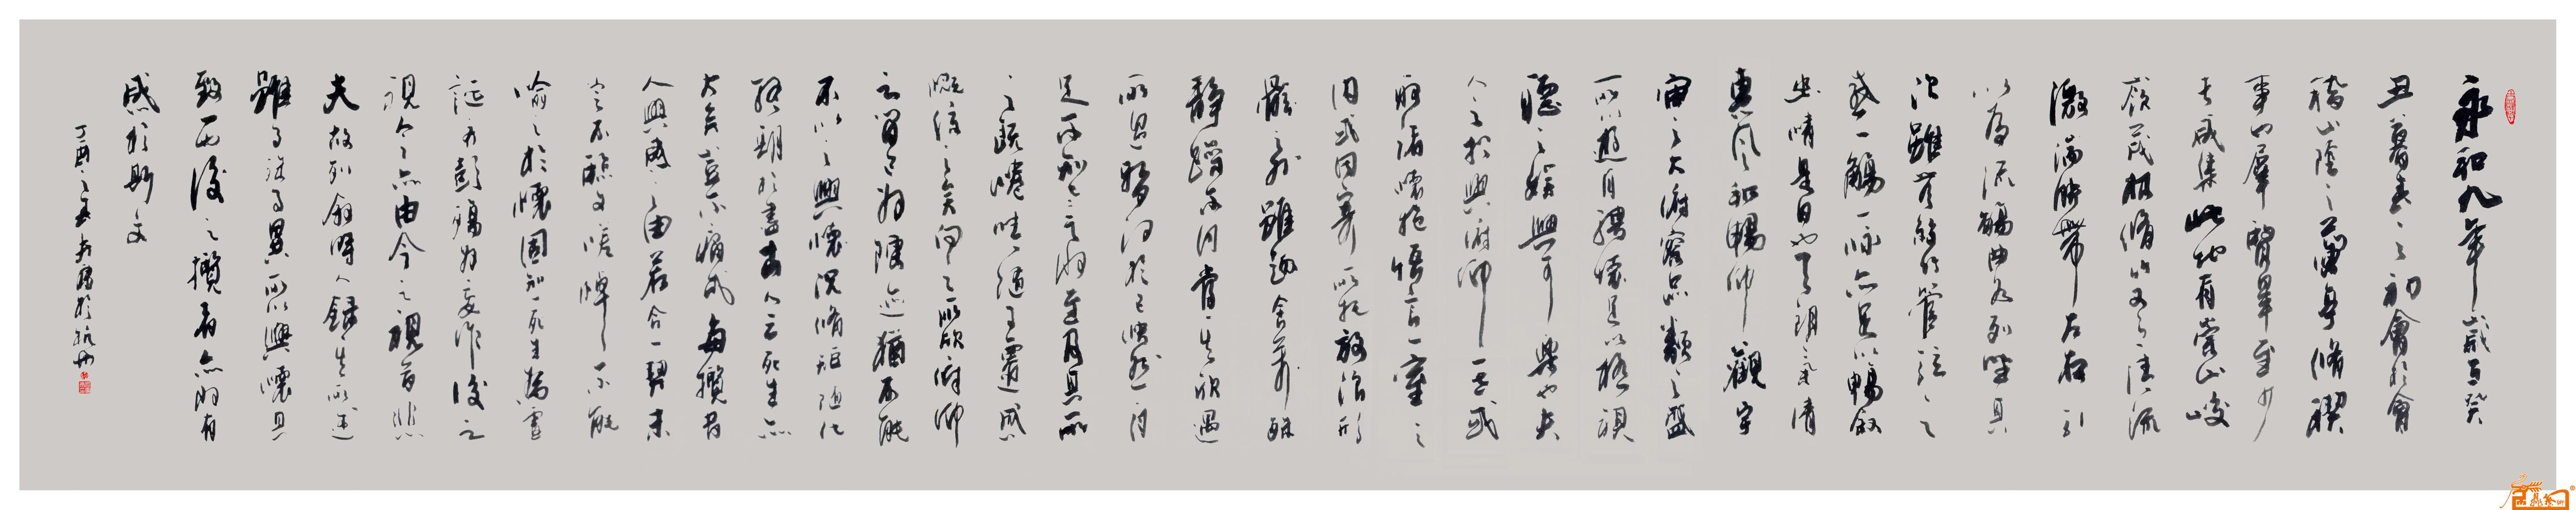 永和九年歲在癸
丑暮春之初會於會
稽山陰之蘭亭脩禊
事也羣賢畢至少
長咸集此地有崇山峻
領茂林脩竹又有清流
激湍映帶左右引
以為流觴曲水列坐其
次雖無絲竹管弦之
盛一觴一詠亦足以暢敘
幽情是日也天朗氣清
惠風和暢仰觀宇
宙之大俯察品類之盛
所以遊目騁懷足以極視
聽之娛信可樂也夫
人之相與俯仰一世或
取諸懷抱悟言一室之
內或因寄所託放浪形
骸之外雖趣舍萬殊
靜躁不同當其欣遇
所遇暫得於己快然自
足不知老之將至及其所
之既惓情隨事遷感
慨係之矣向之所欣俯仰
之間已為陳迹猶不能
不以之興懷況脩短隨化
終期於盡古人云死生亦
大矣豈不痛哉每攬昔
人興感之由若合一契未
嘗不臨文嗟悼不能
喻之於懷固知一死生為虛
誕齊彭殤為妄作後之
視今亦由今之視昔悲
夫故列敘時人錄其所述
雖世殊事異所以興懷其
致一也後之攬者亦將有
感於斯文
丁酉之春於杭州